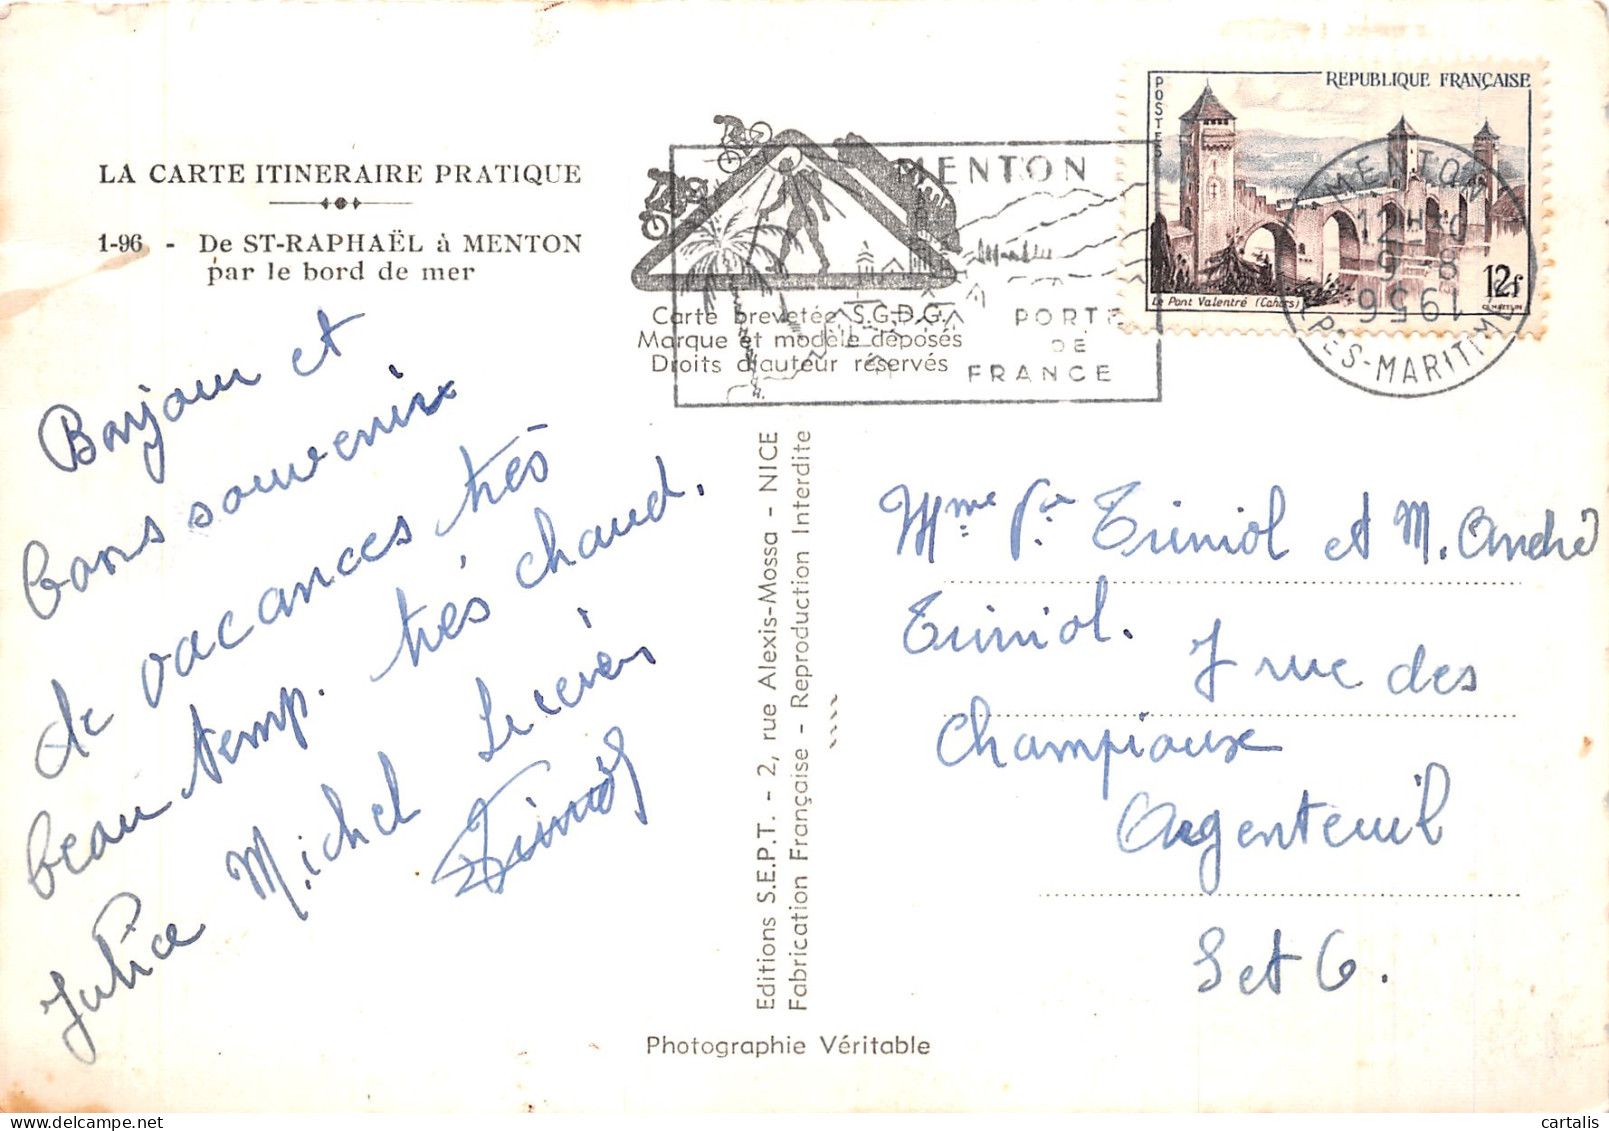 LA CARTE ITINERAIRE PRATIQUE
1-96 - De ST-RAPHAËL à MENTON
par le bord de mer
Carte brevetée S.G.D.G.
Marque et modèle déposés
Droits d'auteur réservés
MENTON
PORTE
DE
FRANCE
POSTES
REPUBLIQUE FRANÇAISE
Le Pont Valentré (Cahors)
12f
MENTON
12H
8-9
1956
ALPES-MARITIMES
Bonjour et
bons souvenirs
de vacances très
beau temp. très chaud.
Michel Lucien
Editions S.E.P.T. - 2, rue Alexis-Mossa - NICE
Fabrication Française - Reproduction Interdite
Photographie Véritable
Mme Vve Triniol et M. André
Triniol. 7 rue des
Champioux
Argenteuil
S et O.
cartalis